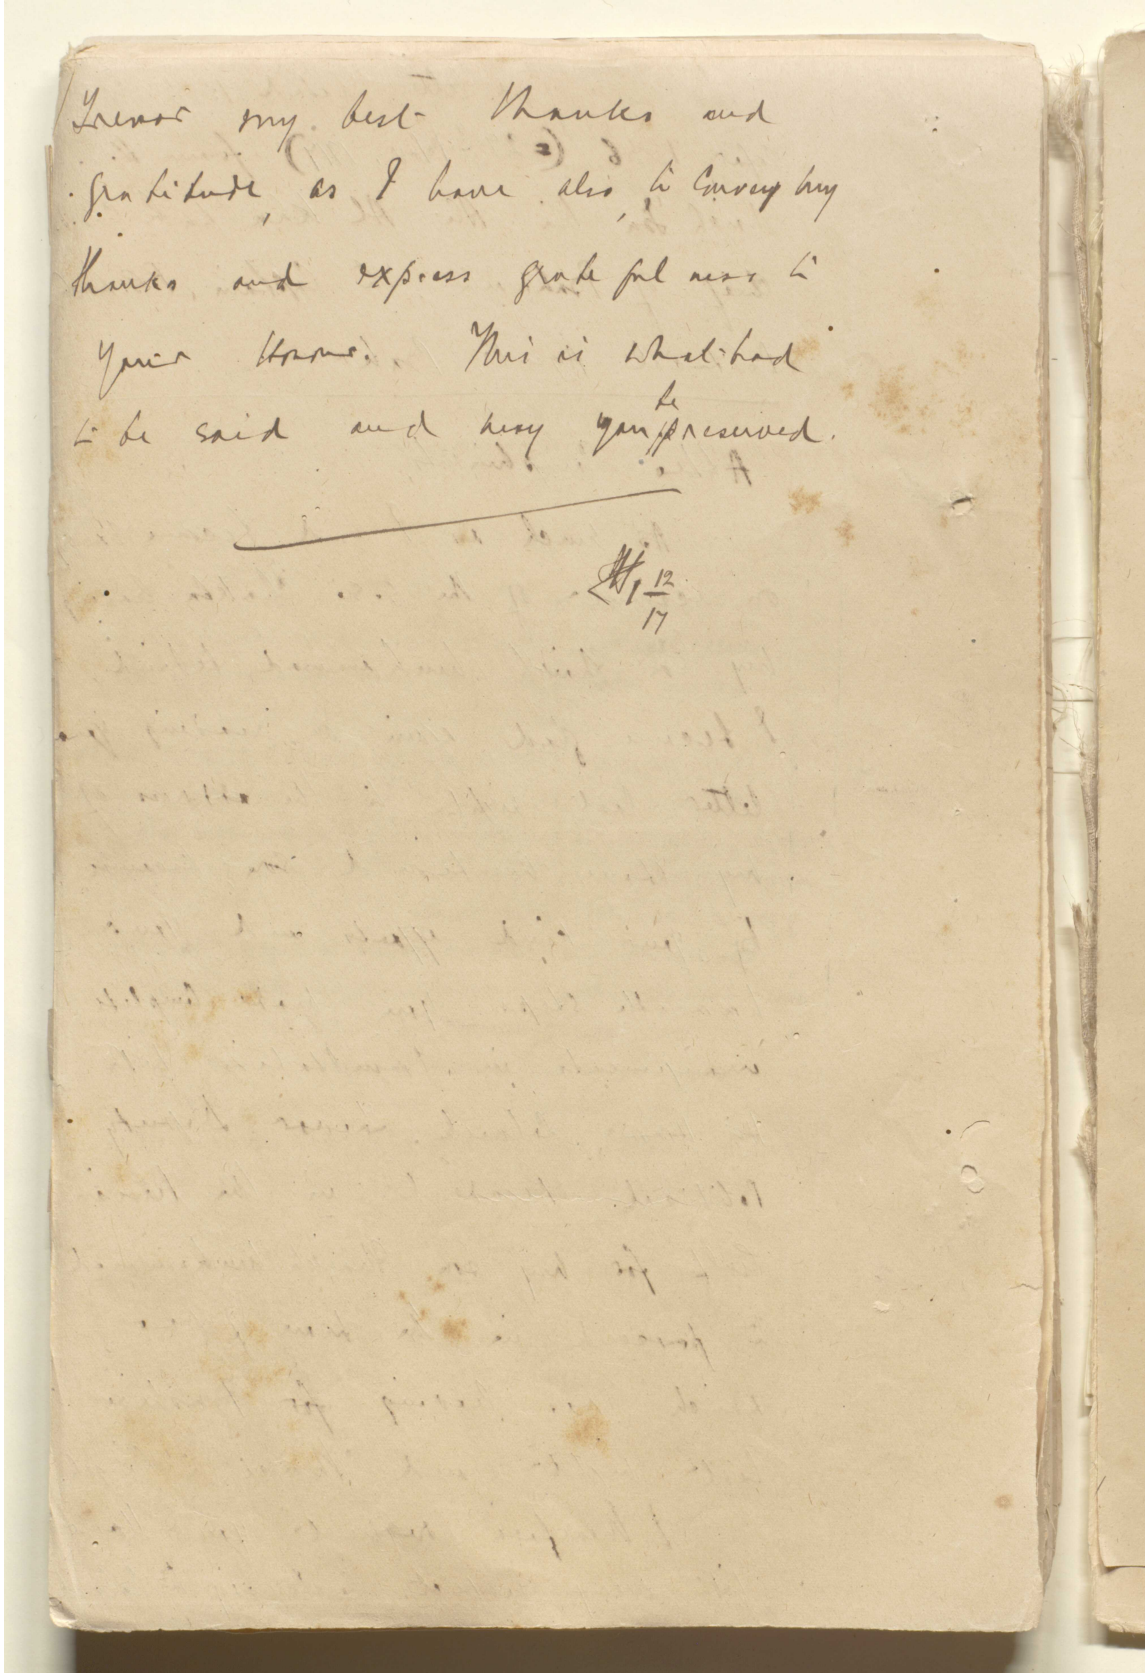 Trevor my best thanks and
gratitude, as I have also, to convey my
thanks and express gratefulness to
Your Honour. This is what had
to be said and may you be preserved.
12
17